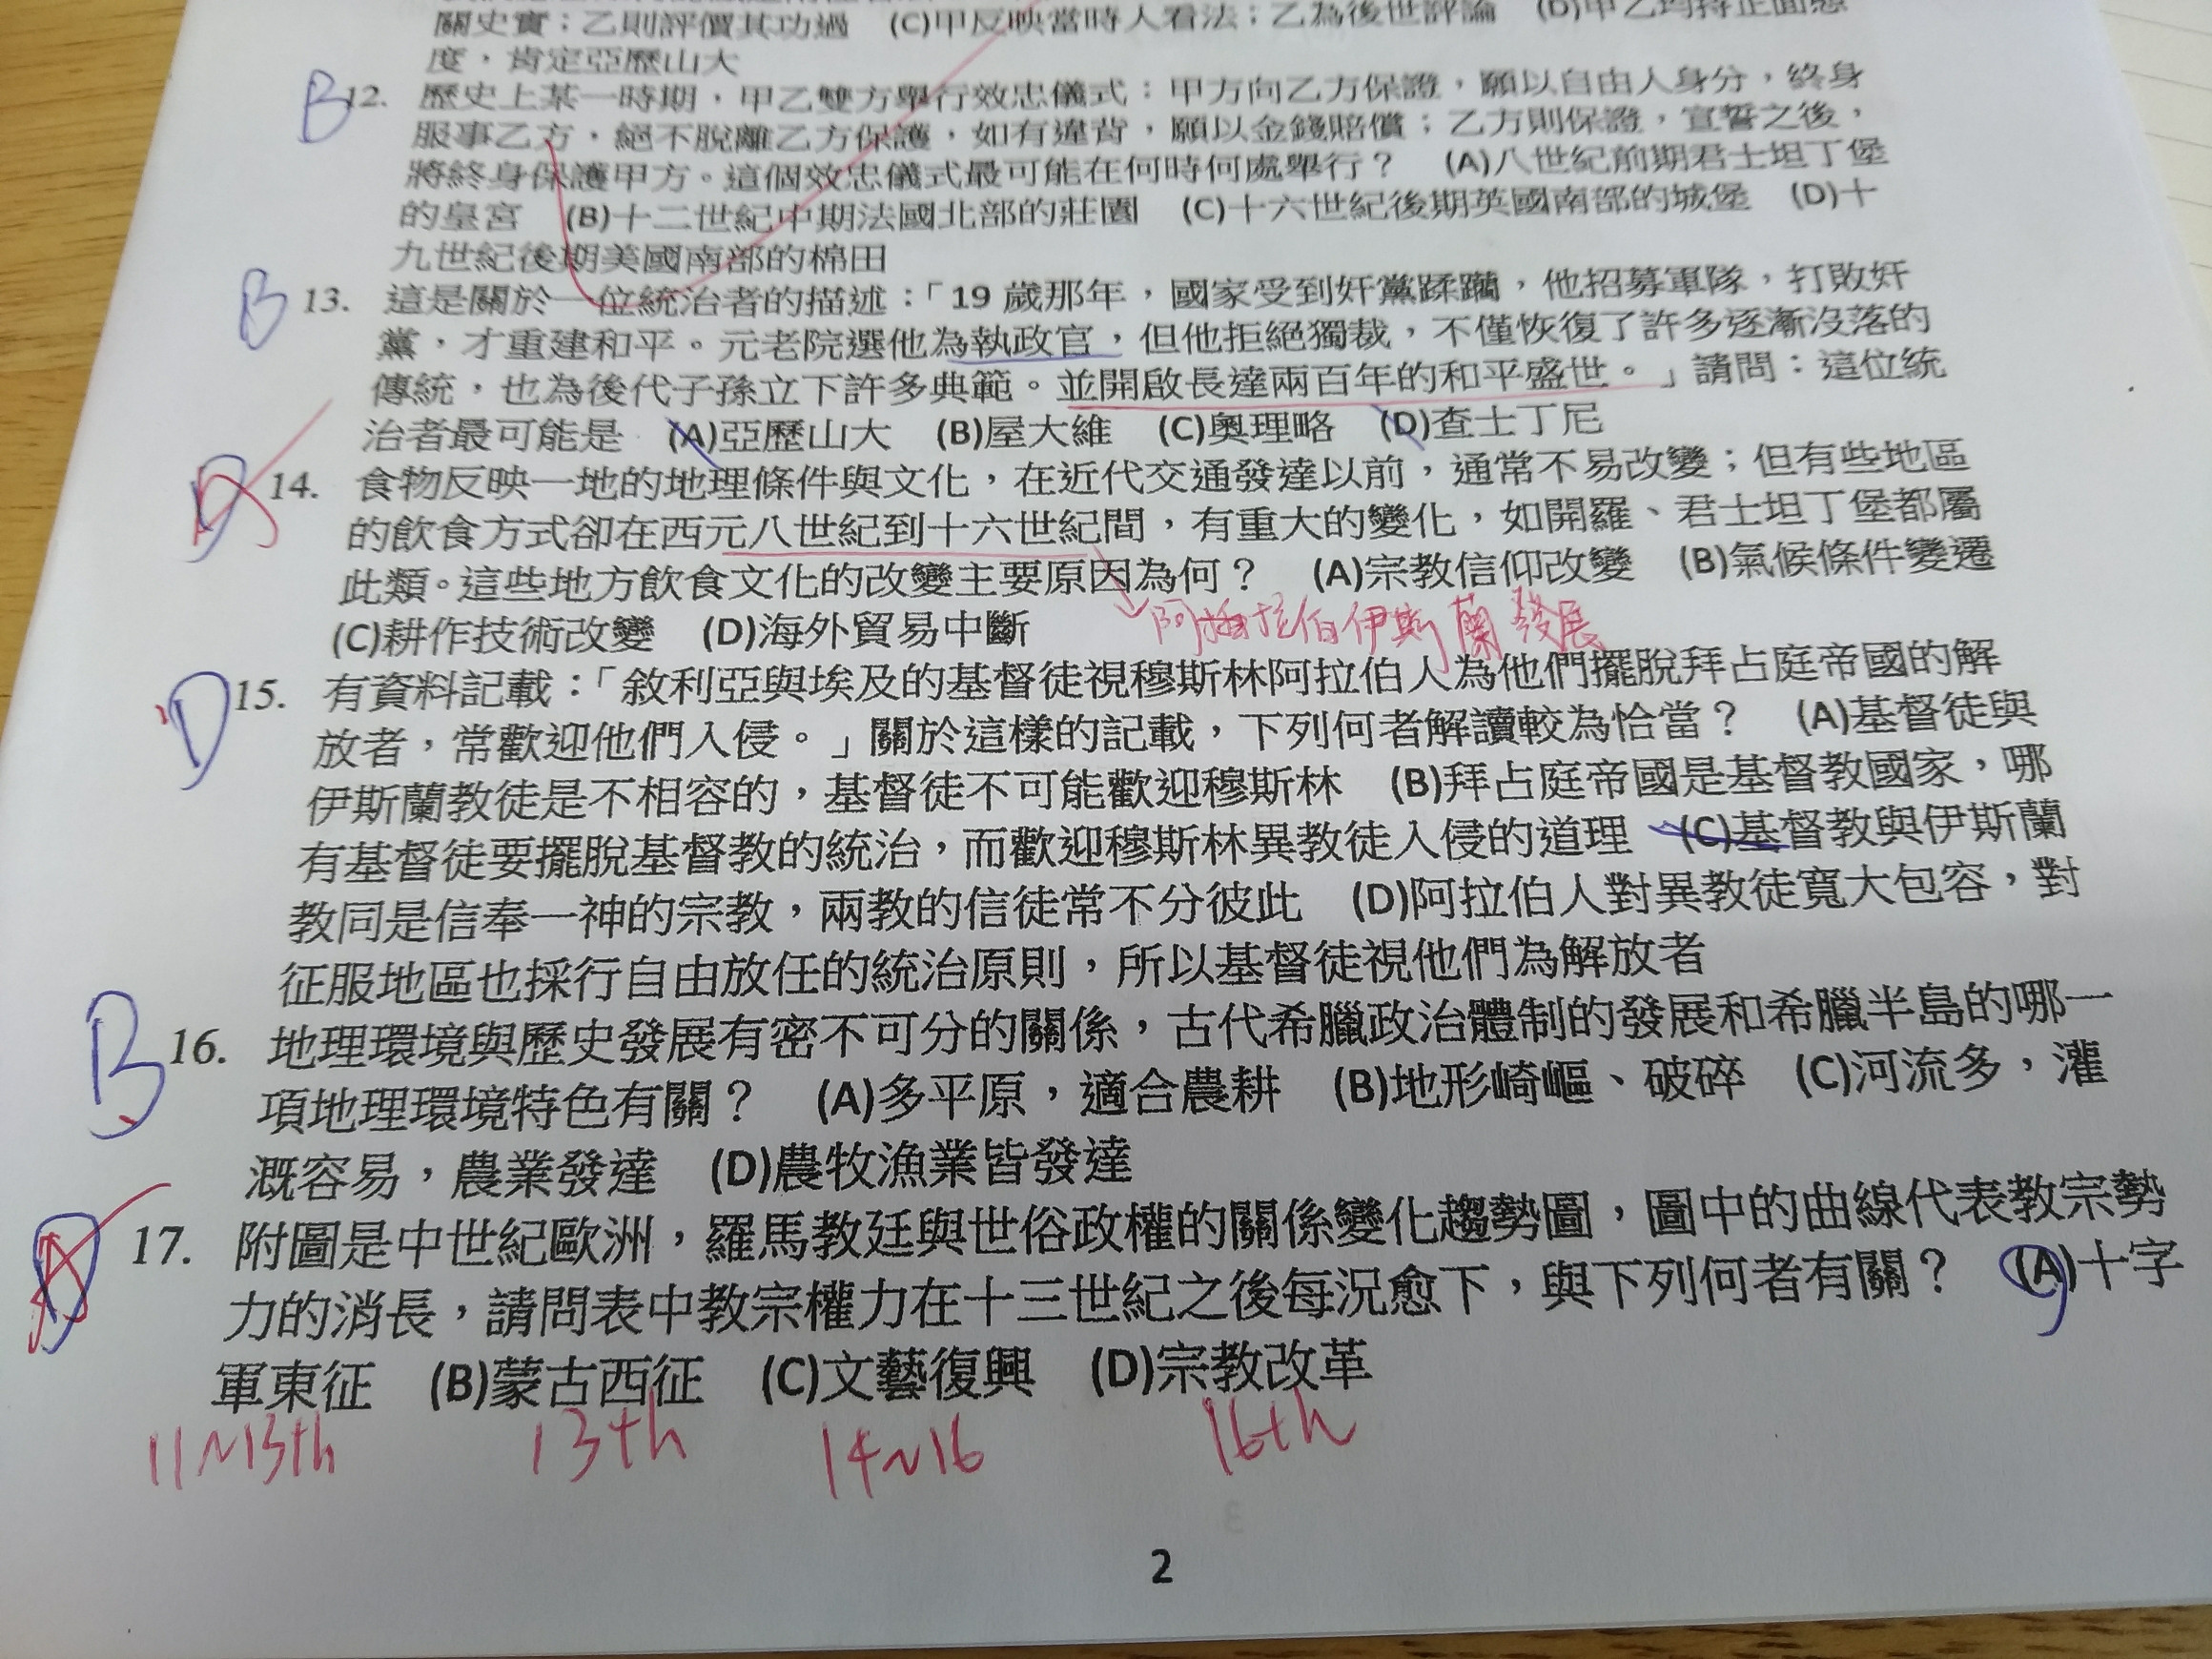 關史實；乙則評價其功過 (C)甲反映當時人看法；乙為後世評論 (D)甲乙均持正面態
度，肯定亞歷山大
B 12. 歷史上某一時期，甲乙雙方舉行效忠儀式：甲方向乙方保證，願以自由人身分，終身
服事乙方，絕不脫離乙方保護，如有違背，願以金錢賠償；乙方則保證，宣誓之後，
將終身保護甲方。這個效忠儀式最可能在何時何處舉行？ (A)八世紀前期君士坦丁堡
的皇宮 (B)十二世紀中期法國北部的莊園 (C)十六世紀後期英國南部的城堡 (D)十
九世紀後期美國南部的棉田
B 13. 這是關於一位統治者的描述：「19 歲那年，國家受到奸黨蹂躪，他招募軍隊，打敗奸
黨，才重建和平。元老院選他為執政官，但他拒絕獨裁，不僅恢復了許多逐漸沒落的
傳統，也為後代子孫立下許多典範。並開啟長達兩百年的和平盛世。」請問：這位統
治者最可能是 (A)亞歷山大 (B)屋大維 (C)奧理略 (D)查士丁尼
14. 食物反映一地的地理條件與文化，在近代交通發達以前，通常不易改變；但有些地區
的飲食方式卻在西元八世紀到十六世紀間，有重大的變化，如開羅、君士坦丁堡都屬
此類。這些地方飲食文化的改變主要原因為何？ (A)宗教信仰改變 (B)氣候條件變遷
(C)耕作技術改變 (D)海外貿易中斷
阿拉伯伊斯蘭發展
D 15. 有資料記載：「敘利亞與埃及的基督徒視穆斯林阿拉伯人為他們擺脫拜占庭帝國的解
放者，常歡迎他們入侵。」關於這樣的記載，下列何者解讀較為恰當？ (A)基督徒與
伊斯蘭教徒是不相容的，基督徒不可能歡迎穆斯林 (B)拜占庭帝國是基督教國家，哪
有基督徒要擺脫基督教的統治，而歡迎穆斯林異教徒入侵的道理 (C)基督教與伊斯蘭
教同是信奉一神的宗教，兩教的信徒常不分彼此 (D)阿拉伯人對異教徒寬大包容，對
征服地區也採行自由放任的統治原則，所以基督徒視他們為解放者
B 16. 地理環境與歷史發展有密不可分的關係，古代希臘政治體制的發展和希臘半島的哪一
項地理環境特色有關？ (A)多平原，適合農耕 (B)地形崎嶇、破碎 (C)河流多，灌
溉容易，農業發達 (D)農牧漁業皆發達
A 17. 附圖是中世紀歐洲，羅馬教廷與世俗政權的關係變化趨勢圖，圖中的曲線代表教宗勢
力的消長，請問表中教宗權力在十三世紀之後每況愈下，與下列何者有關？ (A)十字
軍東征 (B)蒙古西征 (C)文藝復興 (D)宗教改革
11~13th 13th 14~16 16th
2